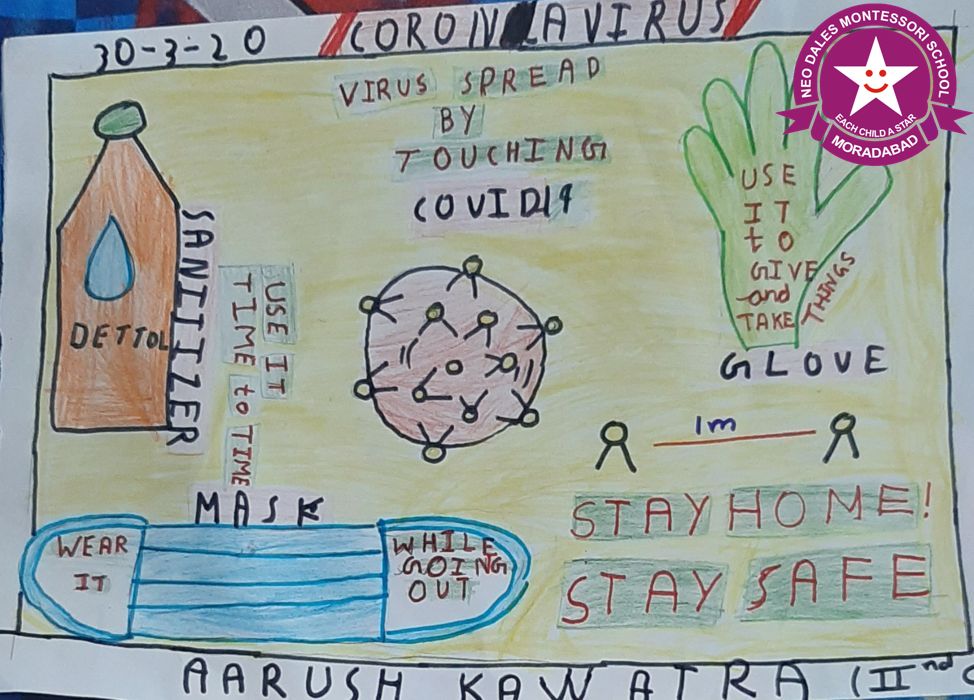 30-3-20
CORONAVIRUS
NEO DALES MONTESSORI SCHOOL
EACH CHILD A STAR
MORADABAD
VIRUS SPREAD
BY
TOUCHING
COVID19
DETTOL
SANITIZER
USE IT
TIME to TIME
USE
IT
to
GIVE
and
TAKE
THINGS
GLOVE
1m
MASK
WEAR
IT
WHILE
GOING
OUT
STAY HOME!
STAY SAFE
AARUSH KAWATRA (IInd